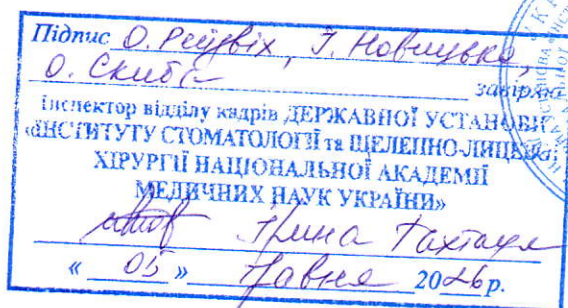 Підпис О. Рейзвіх, І. Новицька,
О. Скиба
завіряю
Інспектор відділу кадрів ДЕРЖАВНОЇ УСТАНОВИ
«ІНСТИТУТУ СТОМАТОЛОГІЇ та ЩЕЛЕПНО-ЛИЦЕВОЇ
ХІРУРГІЇ НАЦІОНАЛЬНОЇ АКАДЕМІЇ
МЕДИЧНИХ НАУК УКРАЇНИ»
Ірина
« 05 » травня 2026 р.